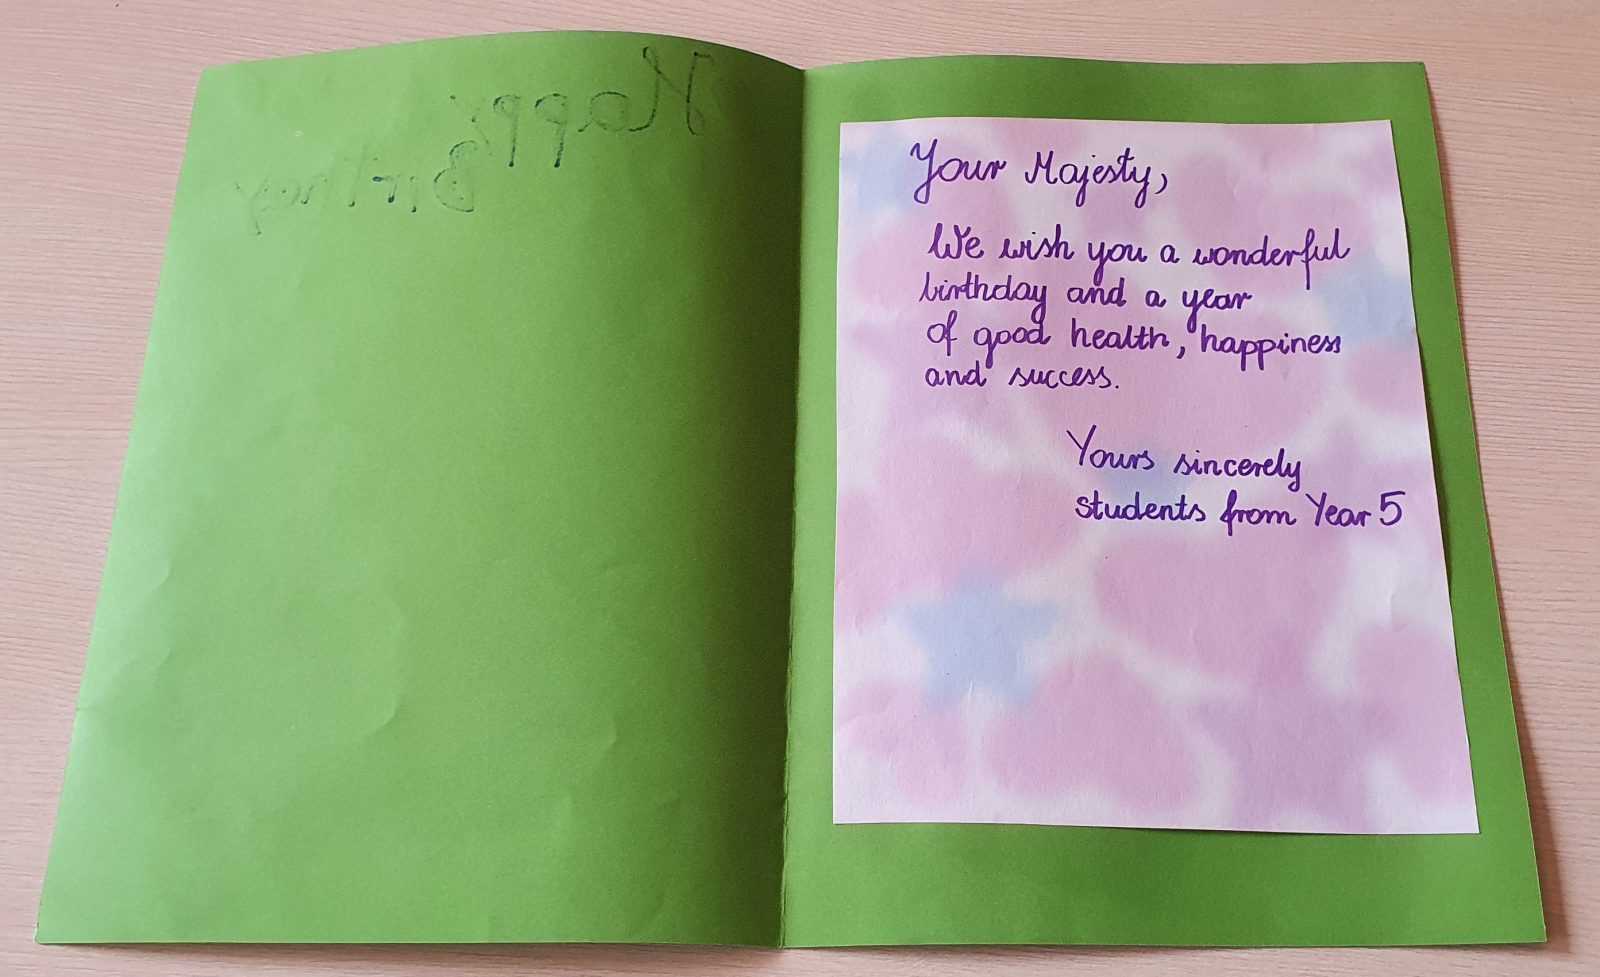 Happy
Birthay
Your Majesty,
We wish you a wonderful
birthday and a year
of good health, happiness
and success.
Yours sincerely
students from Year 5